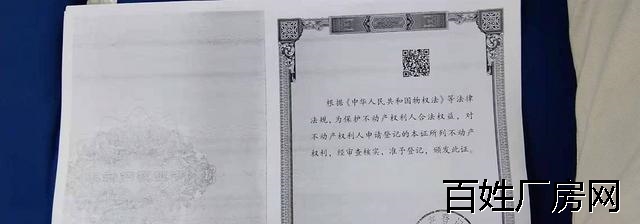 根据《中华人民共和国物权法》等法律
法规，为保护不动产权利人合法权益，对
不动产权利人申请登记的本证所列不动产
权利，经审查核实，准予登记，颁发此证。
百姓厂房网